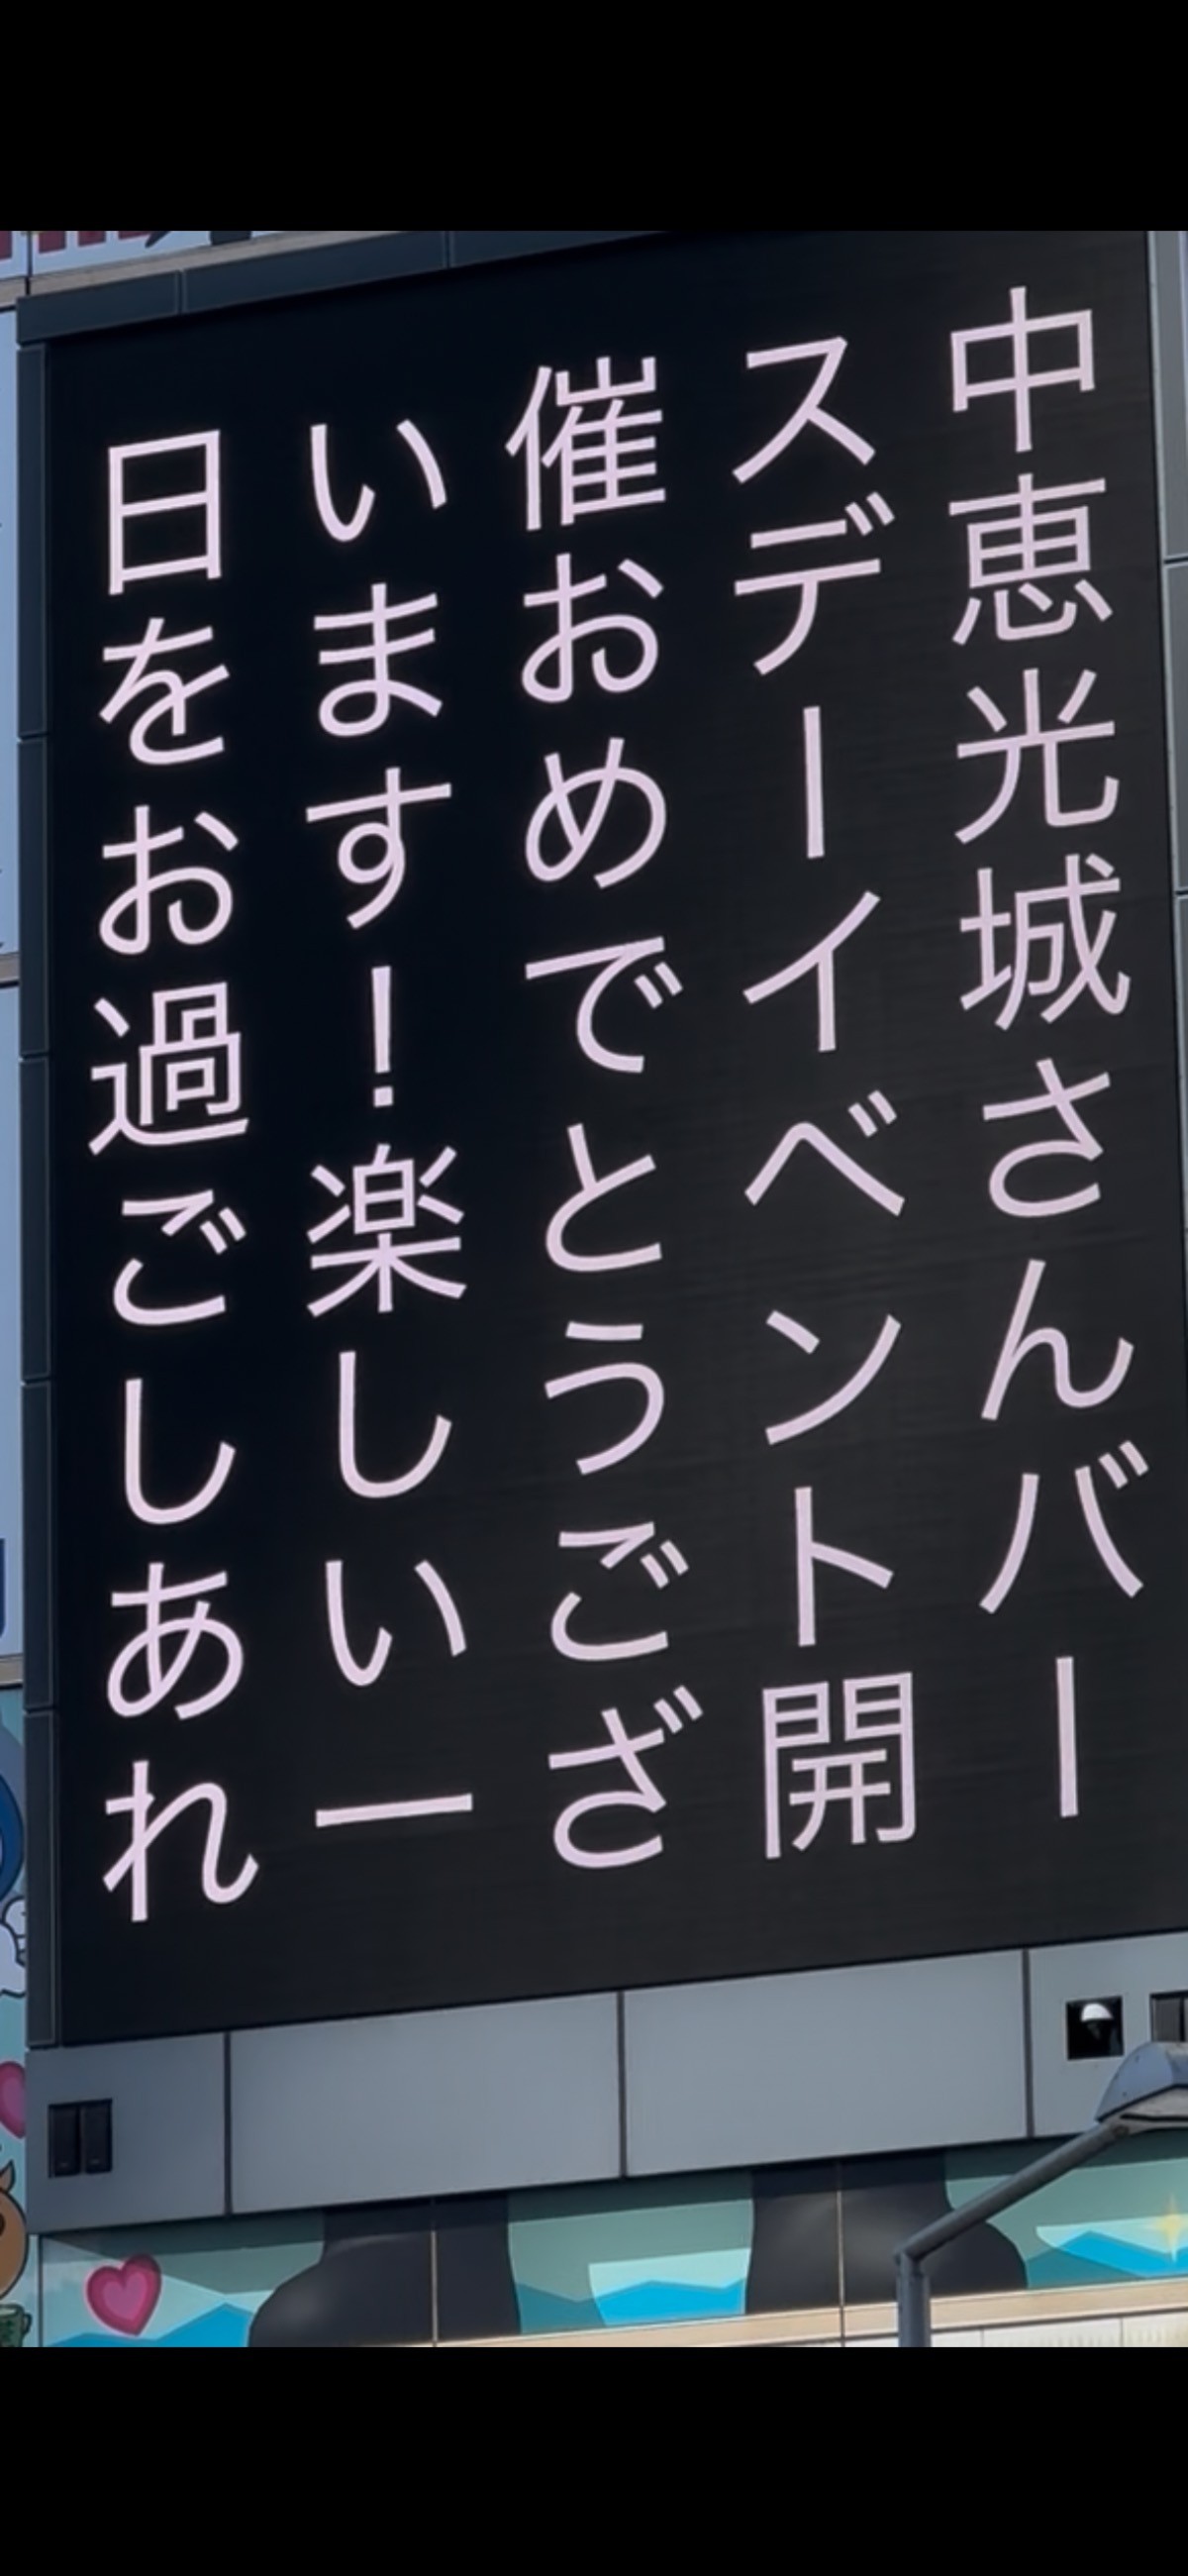 中恵光城さんバー
スデーイベント開
催おめでとうござ
います！楽しい一
日をお過ごしあれ